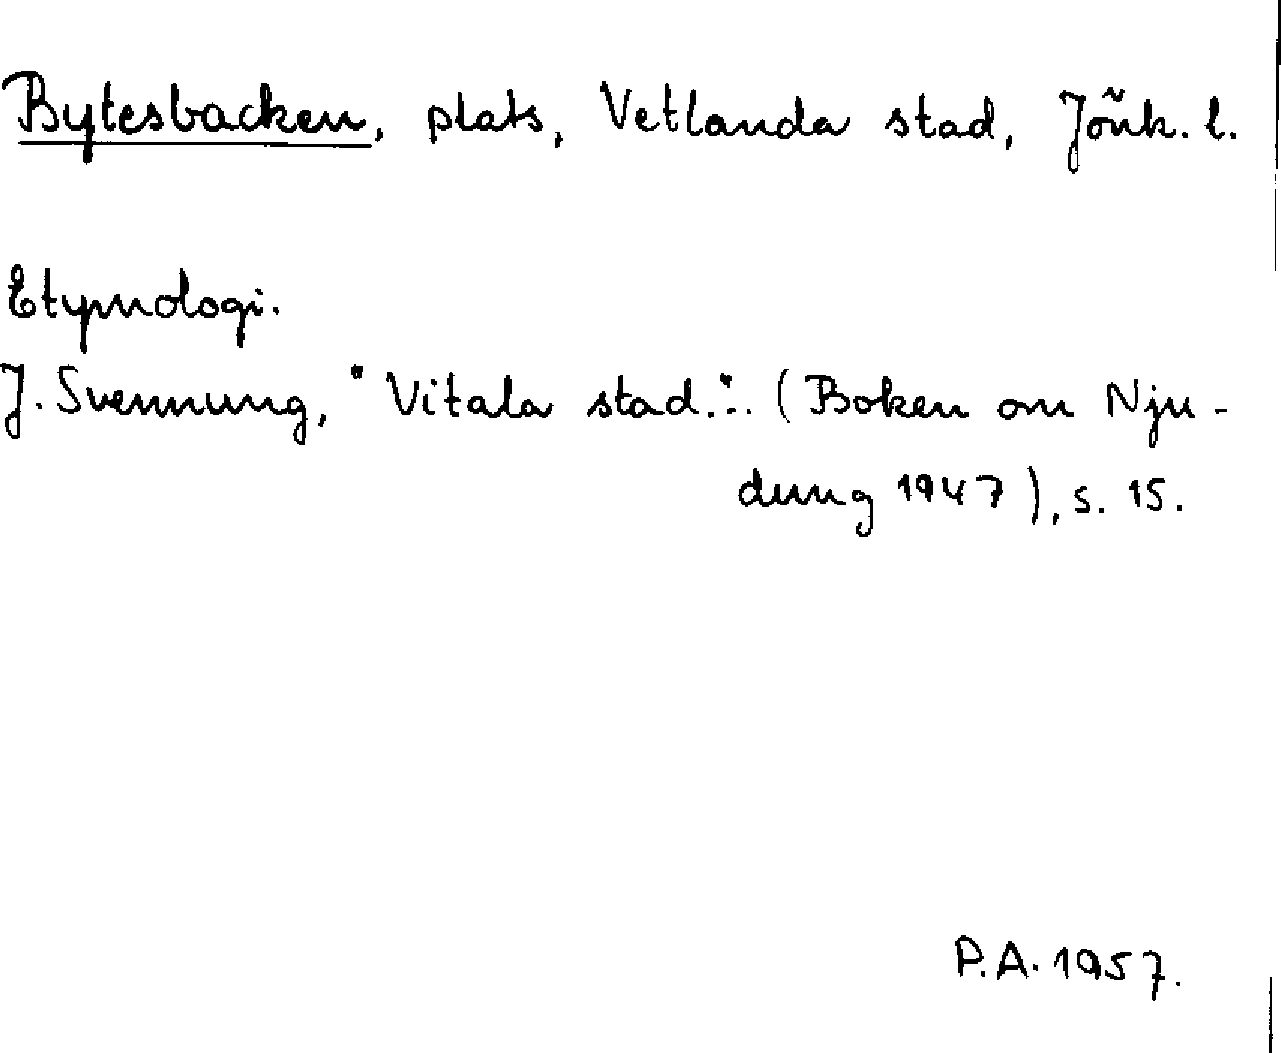 Bytesbacken, plats, Vetlanda stad, Jönk. l.
Etymologi.
J. Svennung, "Vitala stad..". (Boken om Nju-
dung 1947), s. 15.
P.A. 1957.